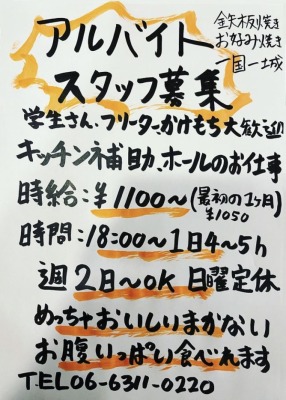 アルバイト
スタッフ募集
鉄板焼き
お好み焼き
一国一城
学生さん、フリーターかけもち大歓迎
キッチン補助、ホールのお仕事
時給:¥1100～(最初の1ヶ月)
¥1050
時間:18:00～1日4～5h
週2日～OK 日曜定休
めっちゃおいしいまかない
お腹いっぱい食べれます
TEL06-6311-0220